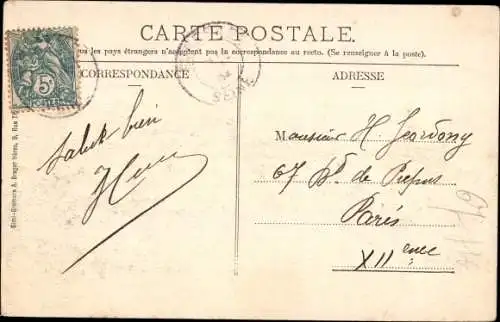 CARTE POSTALE.
us les pays étrangers n'acceptent pas la correspondance au recto. (Se renseigner à la poste).
CORRESPONDANCE
ADRESSE
5c
Salut bien
Monsieur H. Geordony
67 Bd de Picpus
Paris
XIIeme